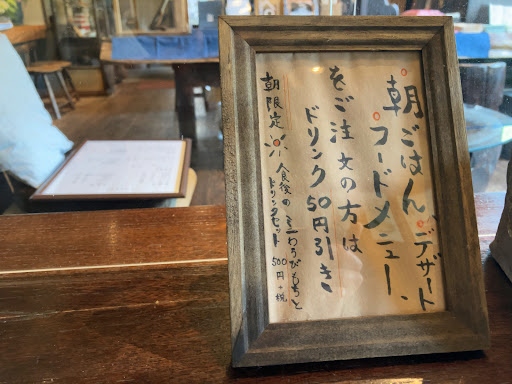 朝ごはん、デザート
フードメニュー、
をご注文の方は
ドリンク50円引き
朝限定※食後のミニわらびもちと
ドリンクセット 500円+税